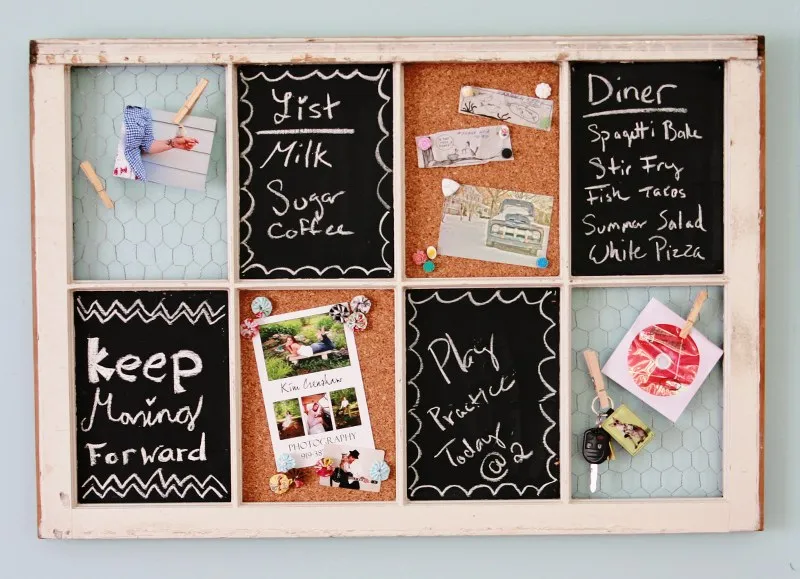 List
Milk
Sugar
Coffee
Diner
Spagetti Bake
Stir Fry
Fish Tacos
Summer Salad
White Pizza
Keep
Moving
Forward
Kim Crenshaw
PHOTOGRAPHY
Play
Practice
Today
@2